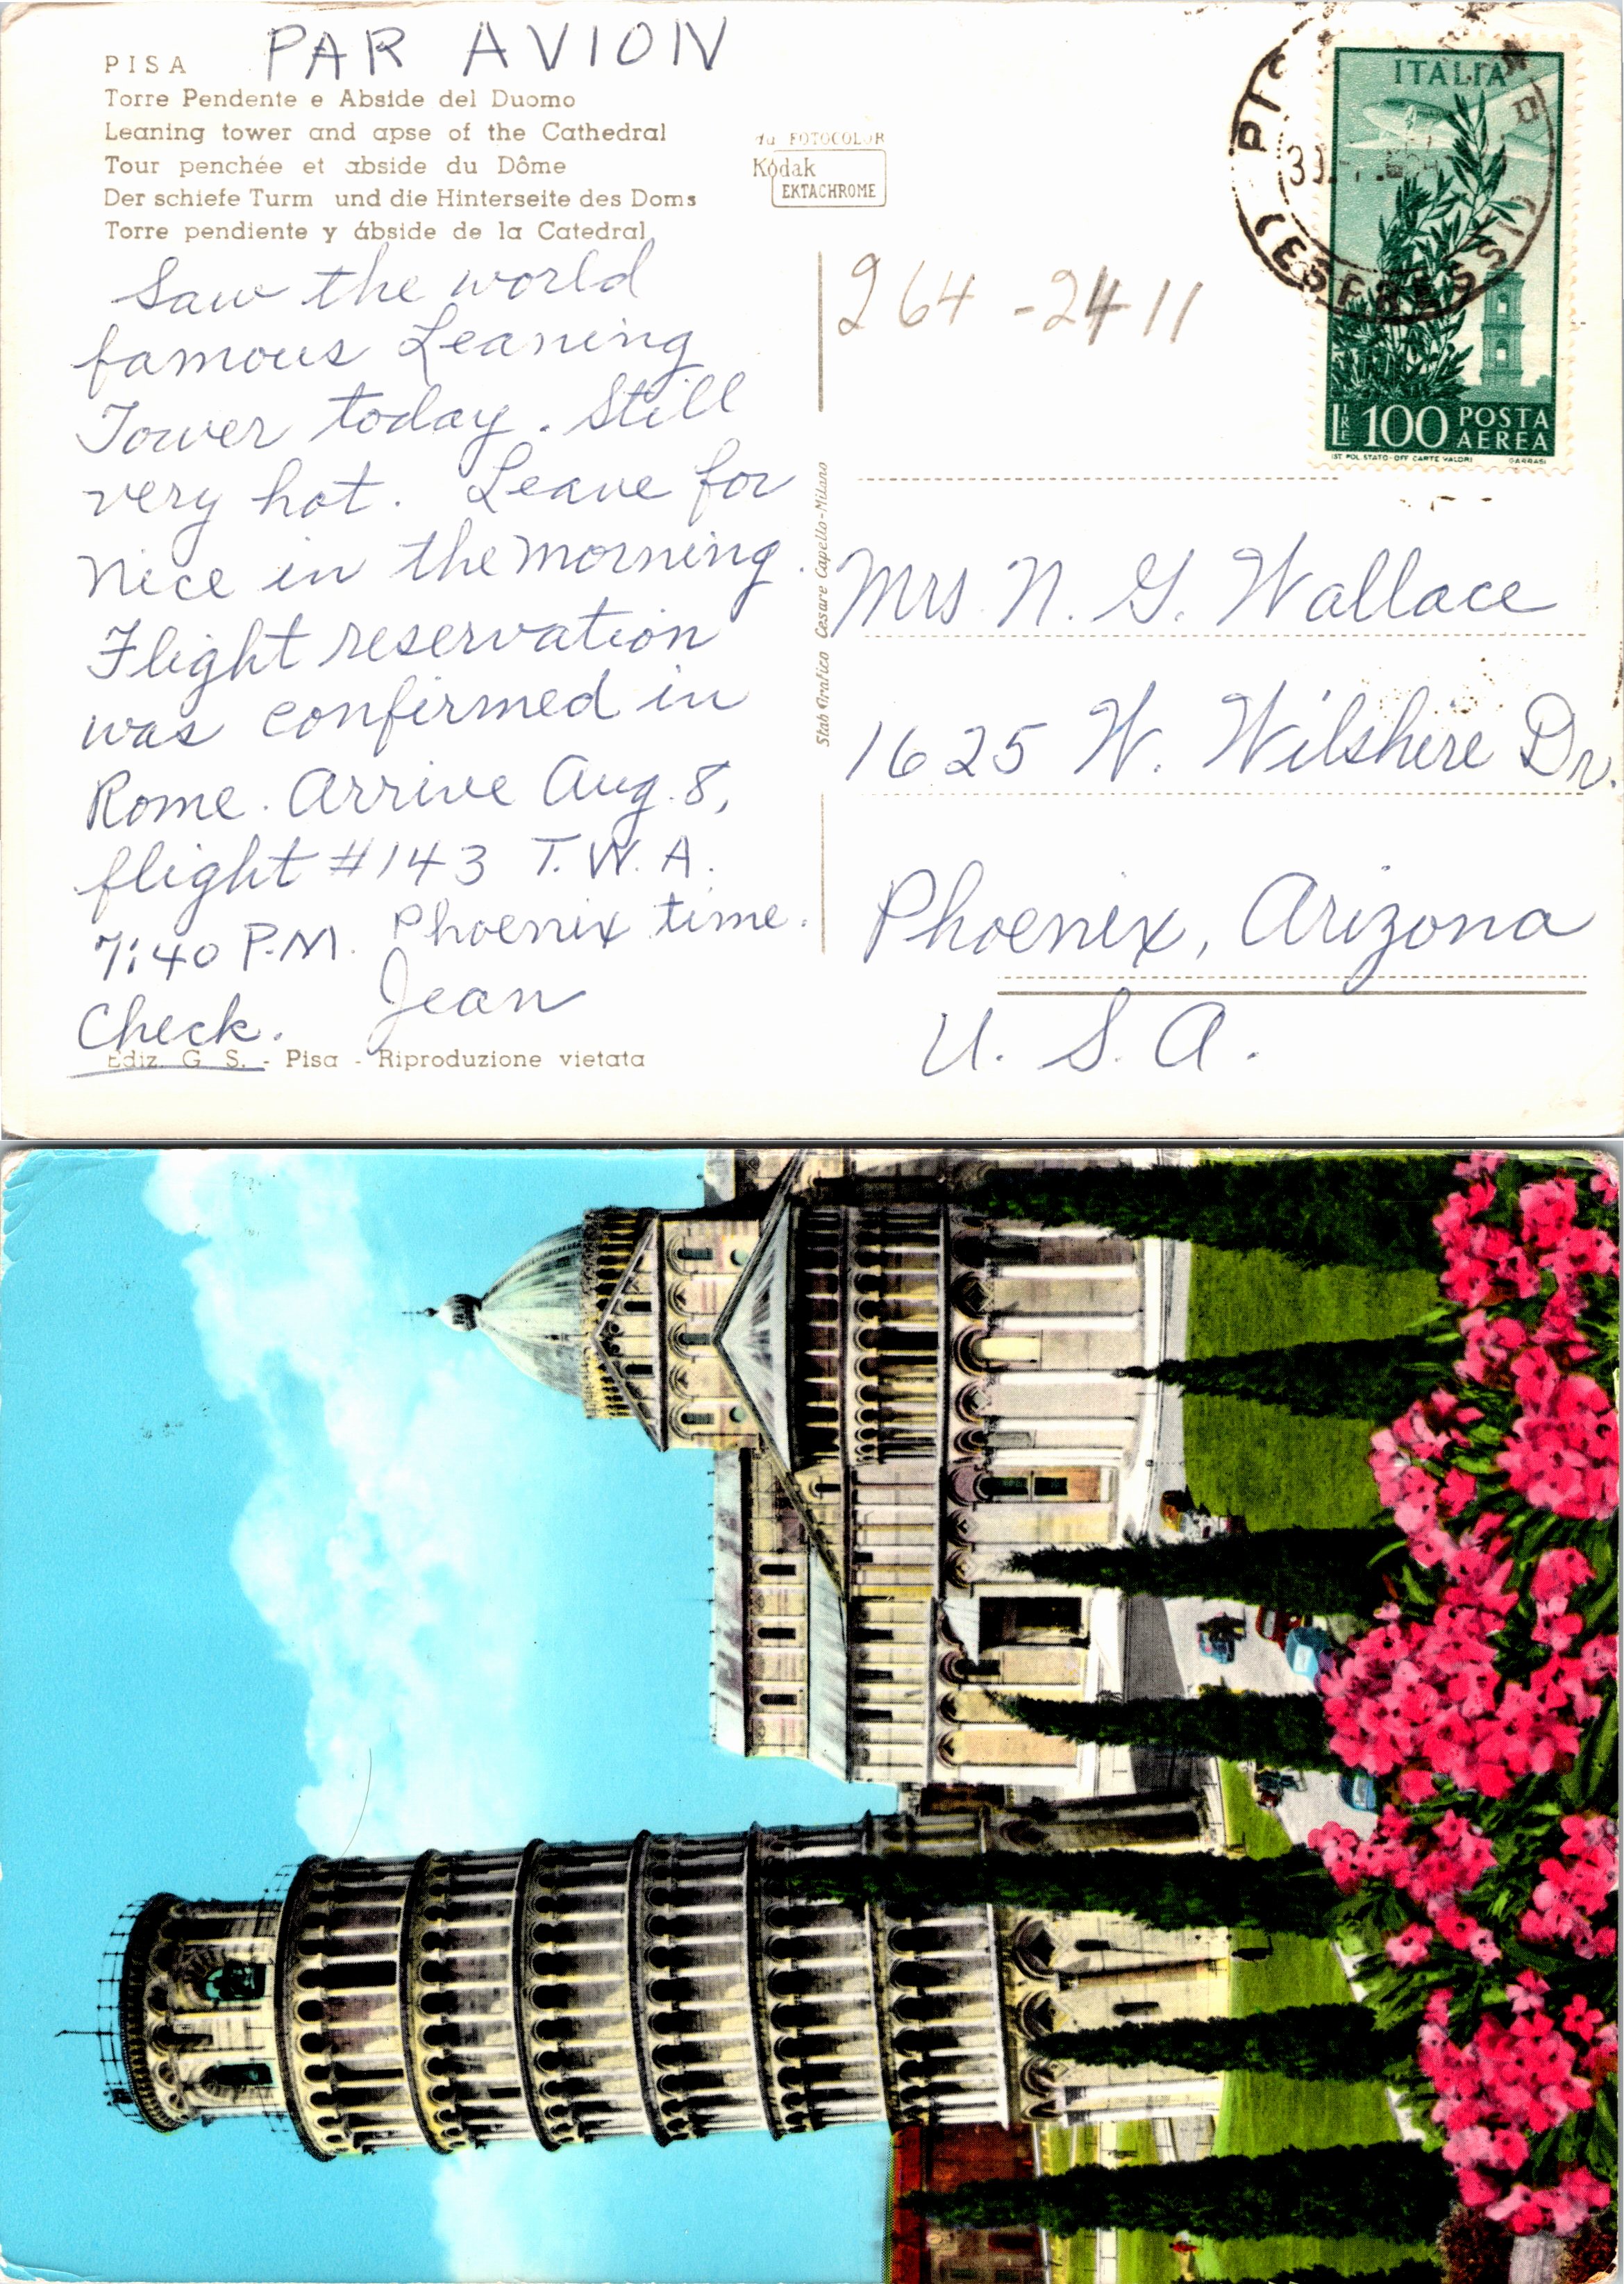 PAR AVION
PISA
Torre Pendente e Abside del Duomo
Leaning tower and apse of the Cathedral
Tour penchée et abside du Dôme
Der schiefe Turm und die Hinterseite des Doms
Torre pendiente y ábside de la Catedral
da FOTOCOLOR
Kodak
EKTACHROME
Saw the world
famous Leaning
Tower today. Still
very hot. Leave for
Nice in the morning.
Flight reservation
was confirmed in
Rome. Arrive Aug. 8,
flight #143 T.W.A.
7:40 P.M. Phoenix time.
Check. Jean
Ediz. G. S. - Pisa - Riproduzione vietata
Stab Grafico Cesare Capello - Milano
264-2411
ITALIA
LIRE 100 POSTA
AEREA
IST. POL. STATO - OFF. CARTE VALORI
(ESPRESSI)
Mrs. N. G. Wallace
1625 W. Wilshire Dr.
Phoenix, Arizona
U. S. A.